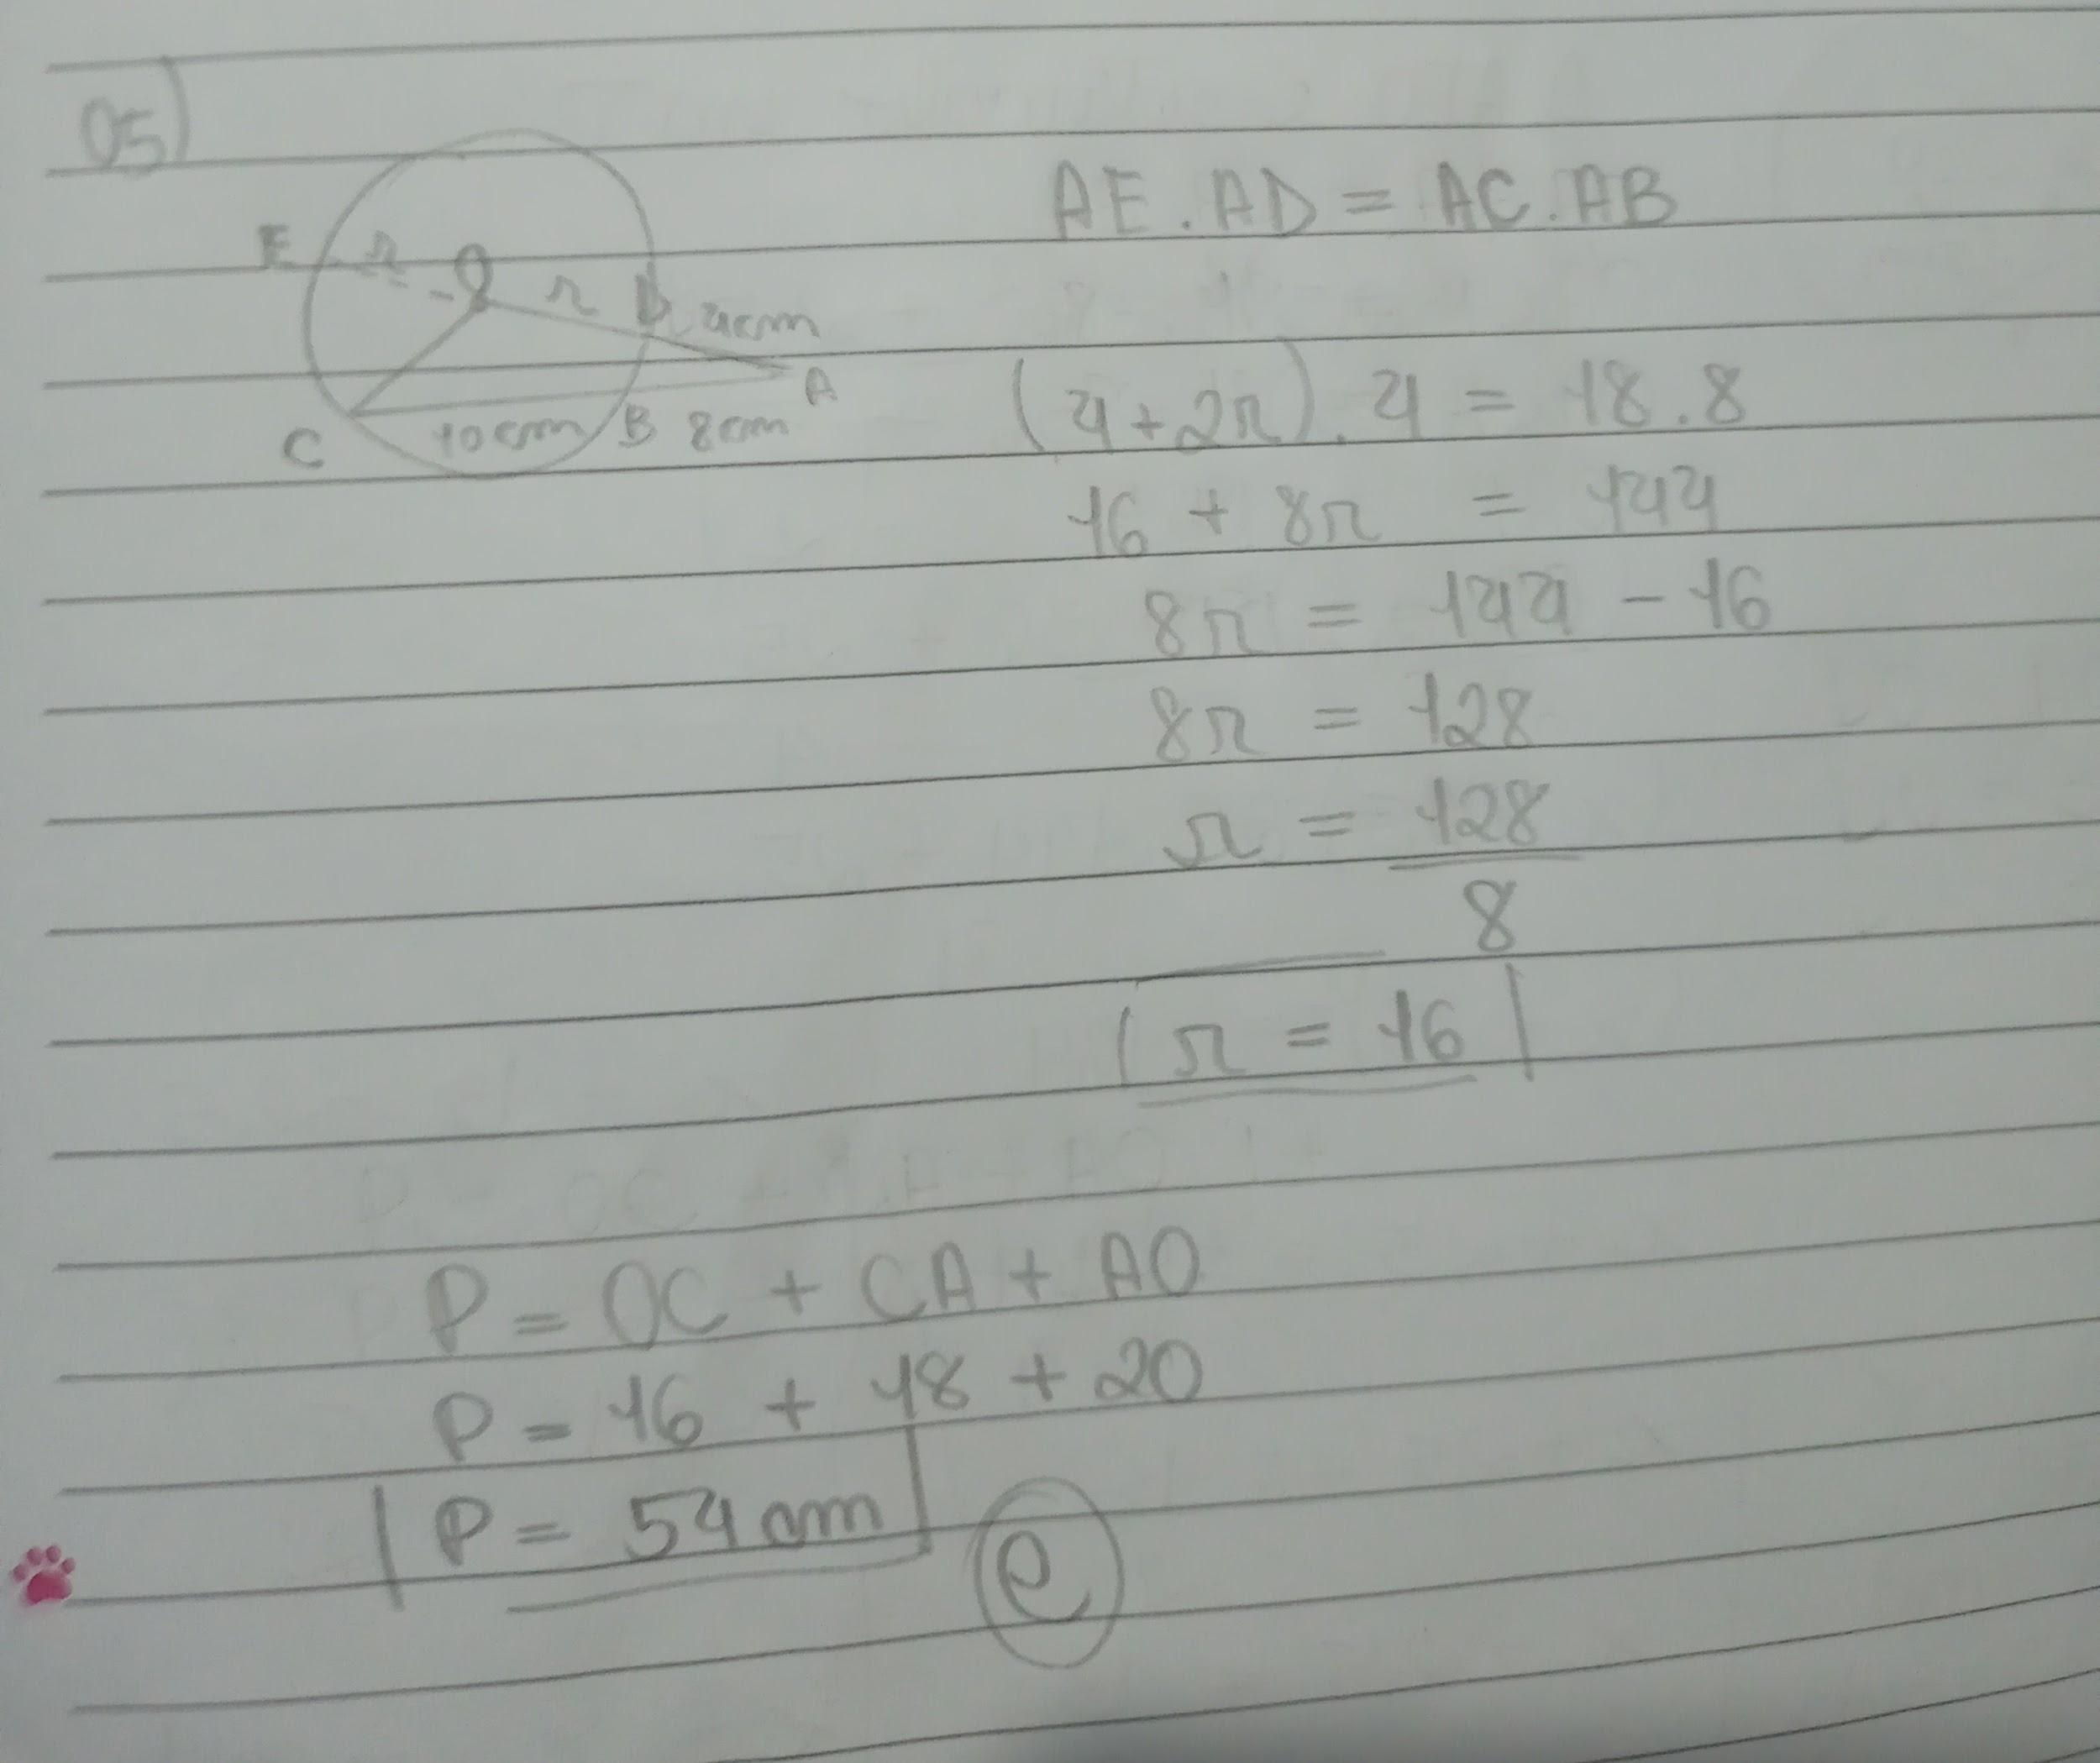 05)
E r O r D 4cm
A
C 10cm B 8cm
AE . AD = AC . AB
(4+2r) . 4 = 18 . 8
16 + 8r = 144
8r = 144 - 16
8r = 128
r = 128
8
r = 16
P = OC + CA + AO
P = 16 + 18 + 20
P = 54cm
e